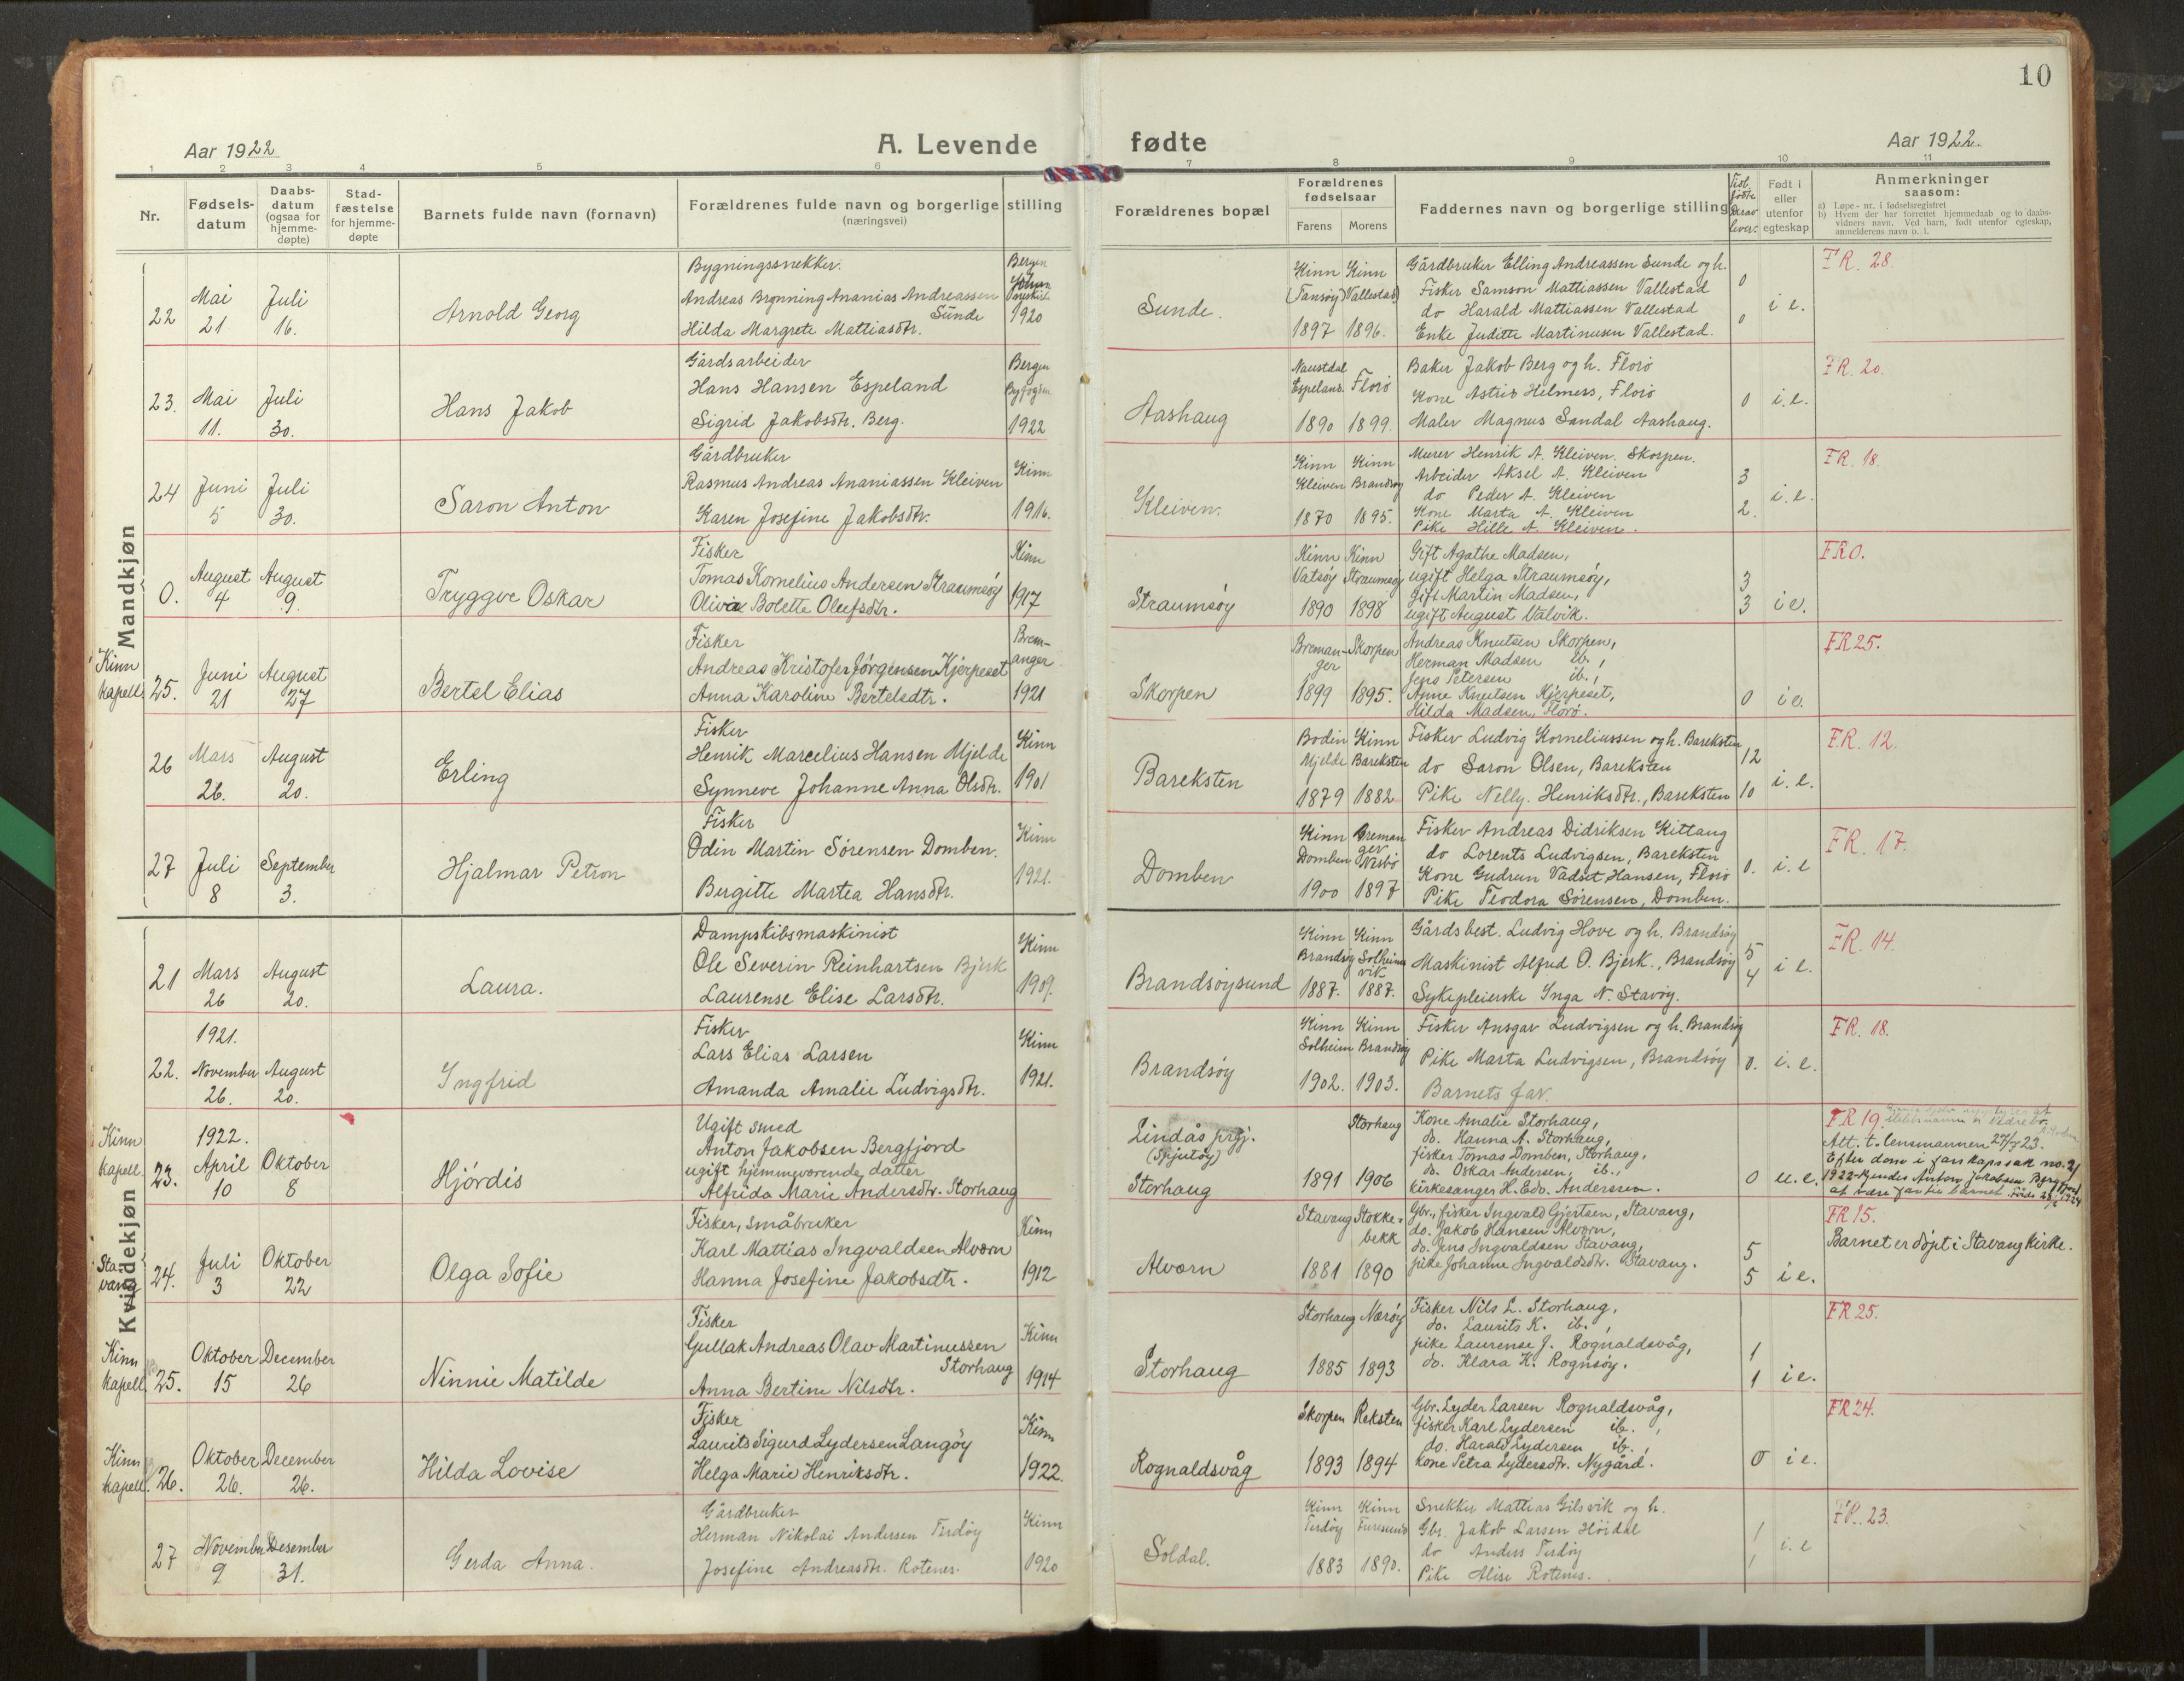 10
Aar 1922
A. Levende fødte
Aar 1922.
1 2 3 4 5 6 7 8 9 10 11
Nr.
Fødsels-
datum
Daabs-
datum
(ogsaa for
hjemme-
døpte)
Stad-
fæstelse
for hjemme-
døpte
Barnets fulde navn (fornavn)
Forældrenes fulde navn og borgerlige stilling
(næringsvei)
Forældrenes bopæl
Forældrenes
fødselsaar
Farens
Morens
Faddernes navn og borgerlige stilling
Født i
eller
utenfor
egteskap
Anmerkninger
saasom:
a) Løpe-nr. i fødselsregistret
b) Hvem der har forrettet hjemmedaab og to daabs-
vidners navn. Ved barn, født utenfor egteskap,
anmelderens navn o. l.
Mandkjøn
22
Mai
21
Juli
16.
Arnold Georg
Bygningssnekker.
Andreas Brønning Ananias Andreassen
Sunde
Hilda Margrete Mattiasdtr.
Bergen
1920
Sunde.
Kinn
(Tansøy)
1897
Kinn
(Vallestad)
1896.
Gårdbruker Elling Andreassen Sunde og h.
Fisker Samson Mattiassen Vallestad
do Harald Mattiassen Vallestad
Enke Juditte Martinusen Vallestad.
0
0
i e.
FR. 28.
23.
Mai
11.
Juli
30.
Hans Jakob
Gårdsarbeider
Hans Hansen Espeland
Sigrid Jakobsdtr. Berg.
Bergen
Byfogden
1922
Aashaug
Naustdal
Espeland
1890
Florø
1899.
Baker Jakob Berg og h. Florø
Kone Astrid Helmess, Florø
Maler Magnus Sandal Aashaug.
0
i.e.
FR. 20.
24
Juni
5
Juli
30.
Saron Anton
Gårdbruker
Rasmus Andreas Ananiassen Kleiven
Karen Josefine Jakobsdtr.
Kinn
1916.
Kleiven.
Kinn
Kleiven
1870
Kinn
Brandsøy
1895.
Murer Henrik A. Kleiven. Skorpen.
Arbeider Aksel A. Kleiven
do Peder A. Kleiven
Kone Marta A. Kleiven
Pike Hille A. Kleiven.
3
2.
i.e.
FR. 18.
0.
August
4
August
9.
Tryggve Oskar
Fisker
Tomas Kornelius Andersen Straumsøy
Olivie Bolette Olufsdtr.
Kinn
1917
Straumsøy
Kinn
Vatsøy
1890
Kinn
Straumsøy
1898
Gift Agathe Madsen,
ugift Helga Straumsøy,
Gift Martin Madsen,
ugift August Valvik.
3
3
i e.
FR 0.
Kinn
kapell.
25.
Juni
21
August
27
Bertel Elias
Fisker
Andreas Kristofer Jørgensen Kjerpeset
Anna Karoline Bertelsdtr.
Brem-
anger
1921
Skorpen
Breman-
ger
1899
Skorpen
1895.
Andreas Knutsen Skorpen,
Herman Madsen ib.,
Jens Petersen ib.,
Anne Knutsen Kjerpeset,
Hilda Madsen, Florø.
0
i e.
FR 25.
26
Mars
26.
August
20.
Erling
Fisker
Henrik Marcelius Hansen Mjelde
Synneve Johanne Anna Olsdtr.
Kinn
1901
Bareksten
Bodin
Mjelde
1879
Kinn
Bareksten
1882
Fisker Ludvig Korneliussen og h. Bareksten
do Saron Olsen, Bareksten
Pike Nelly. Henriksdtr., Bareksten
12
10
i. e.
FR. 12.
27
Juli
8
September
3.
Hjalmar Petron
Fisker
Odin Martin Sørensen Domben.
Birgitte Martea Hansdtr.
Kinn
1921.
Domben
Kinn
Domben
1900
Breman
ger
1897
Fisker Andreas Didriksen Kittang
do Lorents Ludvigsen, Bareksten
Kone Gudrun Vadset Hansen, Florø
Pike Teodora Sørensen, Domben.
0.
i. e
FR. 17.
Kvindekjøn
21
Mars
26
August
20.
Laura.
Dampskibsmaskinist
Ole Severin Reinhartsen Bjerk
Laurense Elise Larsdtr.
Kinn
1909.
Brandsøysund
Kinn
Brandsøy
1887.
Kinn
Solheims
vik
1887.
Gårdsbest. Ludvig Hove og h. Brandsøy
Maskinist Alfred O. Bjerk., Brandsøy
Sykepleierske Inga N. Stavøy.
5
4
i e.
FR. 14.
22.
1921.
November
26.
August
20.
Ingfrid
Fisker
Lars Elias Larsen
Amanda Amalie Ludvigsdtr.
Kinn
1921.
Brandsøy
Kinn
Solheim
1902.
Kinn
Brandsøy
1903.
Fisker Ansgar Ludvigsen og h. Brandsøy
Pike Marta Ludvigsen, Brandsøy
Barnets far.
0.
i. e.
FR. 18.
Kinn
kapell.
23.
1922.
April
10
Oktober
8
Hjórdis
Ugift smed
Anton Jakobsen Bergfjord
ugift hjemmeværende datter
Alfrida Marie Andersdtr. Storhaug
Lindås prgj.
(Spjutøy)
Storhaug
1891
Storhaug
1906
Kone Amalie Storhaug,
do. Hanna A. Storhaug,
fisker Tomas Domben, Storhaug,
do. Oskar Andersen, ib.,
kirkesanger H. Edv. Anderssen.
0
u. e.
FR 19.
Alt. t. lensmannen 27/7 23.
Efter dom i farskapssak no. 2/
1922 kjendes Anton Jakobsen Bergfjord
at være far til barnet.
Sta-
vang
24.
Juli
3
Oktober
22
Olga Sofie
Fisker, småbruker
Karl Mattias Ingvaldsen Alværn
Hanna Josefine Jakobsdtr.
Kinn
1912
Alværn
Stavang
1881
Stokke-
bekk
1890
Gbr., fisker Ingvald Gjertsen, Stavang,
do. Jakob Hansen Alværn,
do. Jens Ingvaldsen Stavang,
pike Johanne Ingvaldsdtr. Stavang.
5
5
i e.
FR 15.
Barnet er døpt i Stavang kirke.
Kinn
kapell.
25.
Oktober
15
December
26
Ninnie Matilde
Fisker
Gullak Andreas Olav Martinussen
Storhaug
Anna Bertine Nilsdtr.
Kinn
1914
Storhaug
Storhaug
1885
Nærøy
1893
Fisker Nils L. Storhaug,
do. Laurits K. ib.,
pike Laurense J. Rognaldsvåg,
do. Klara K. Rognsøy.
1
1
i e.
FR 25.
Kinn
kapell.
26.
Oktober
26.
December
26.
Hilda Lovise
Fisker
Laurits Sigurd Lydersen Langøy
Helga Marie Henriksdtr.
Kinn
1922.
Rognaldsvåg
Skorpen
1893
Reksten
1894
Gbr. Lyder Larsen Rognaldsvåg,
fisker Karl Lydersen ib.,
do. Harald Lydersen ib.,
kone Petra Lydersdtr. Nygård.
0
i e.
FR 24.
27
November
9
Desember
31.
Gerda Anna.
Gårdbruker
Herman Nikolai Andersen Terdøy
Josefine Andreasdtr. Rotenes.
Kinn
1920
Soldal.
Kinn
Terdøy
1883
Kinn
Furesund
1890.
Snekker Mattias Gilsvik og h.
Gbr. Jakob Larsen Hóidal
do Anders Terdøy
Pike Alise Rotenes.
1
1
i. e
FR. 23.